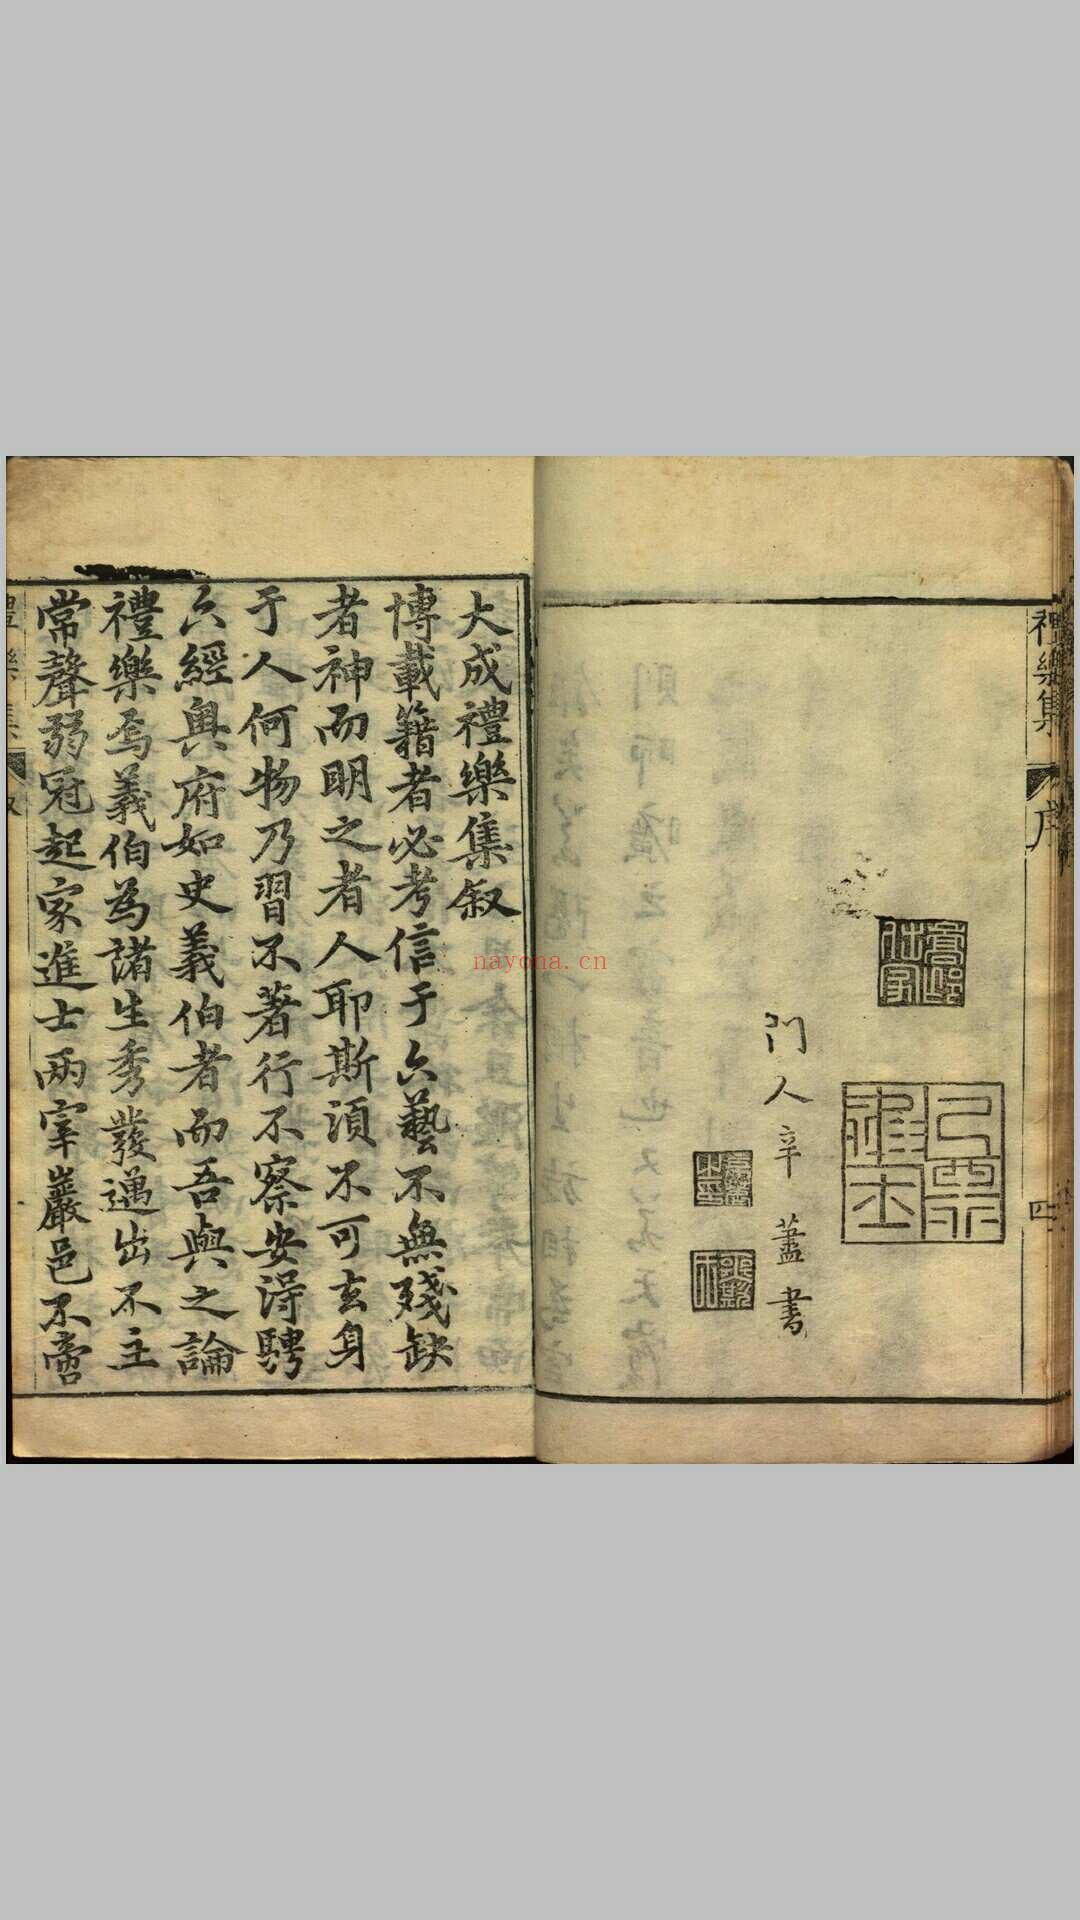 禮樂集
序
四
門人辛藎書
大成禮樂集叙
博載籍者必考信于六藝不無殘缺
者神而明之者人耶斯須不可玄身
于人何物乃習不著行不察安得騁
六經輿府如史義伯者而吾與之論
禮樂焉義伯為諸生秀發邁出不主
常聲弱冠起家進士兩宰巖邑不啻
nayona.cn